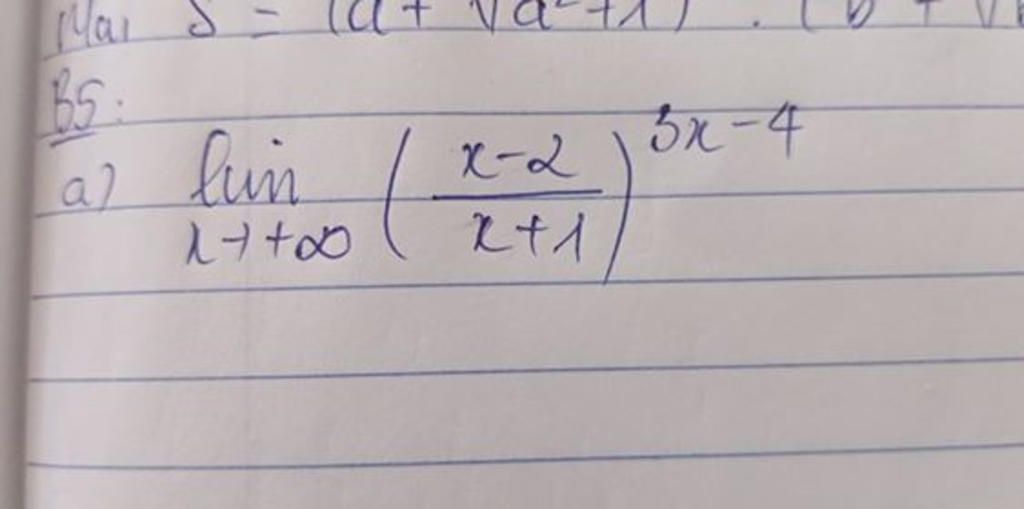 S = (a + √a²+1) . (b + √
B5:
a) lim x→+∞ ((x-2)/(x+1))^(3x-4)